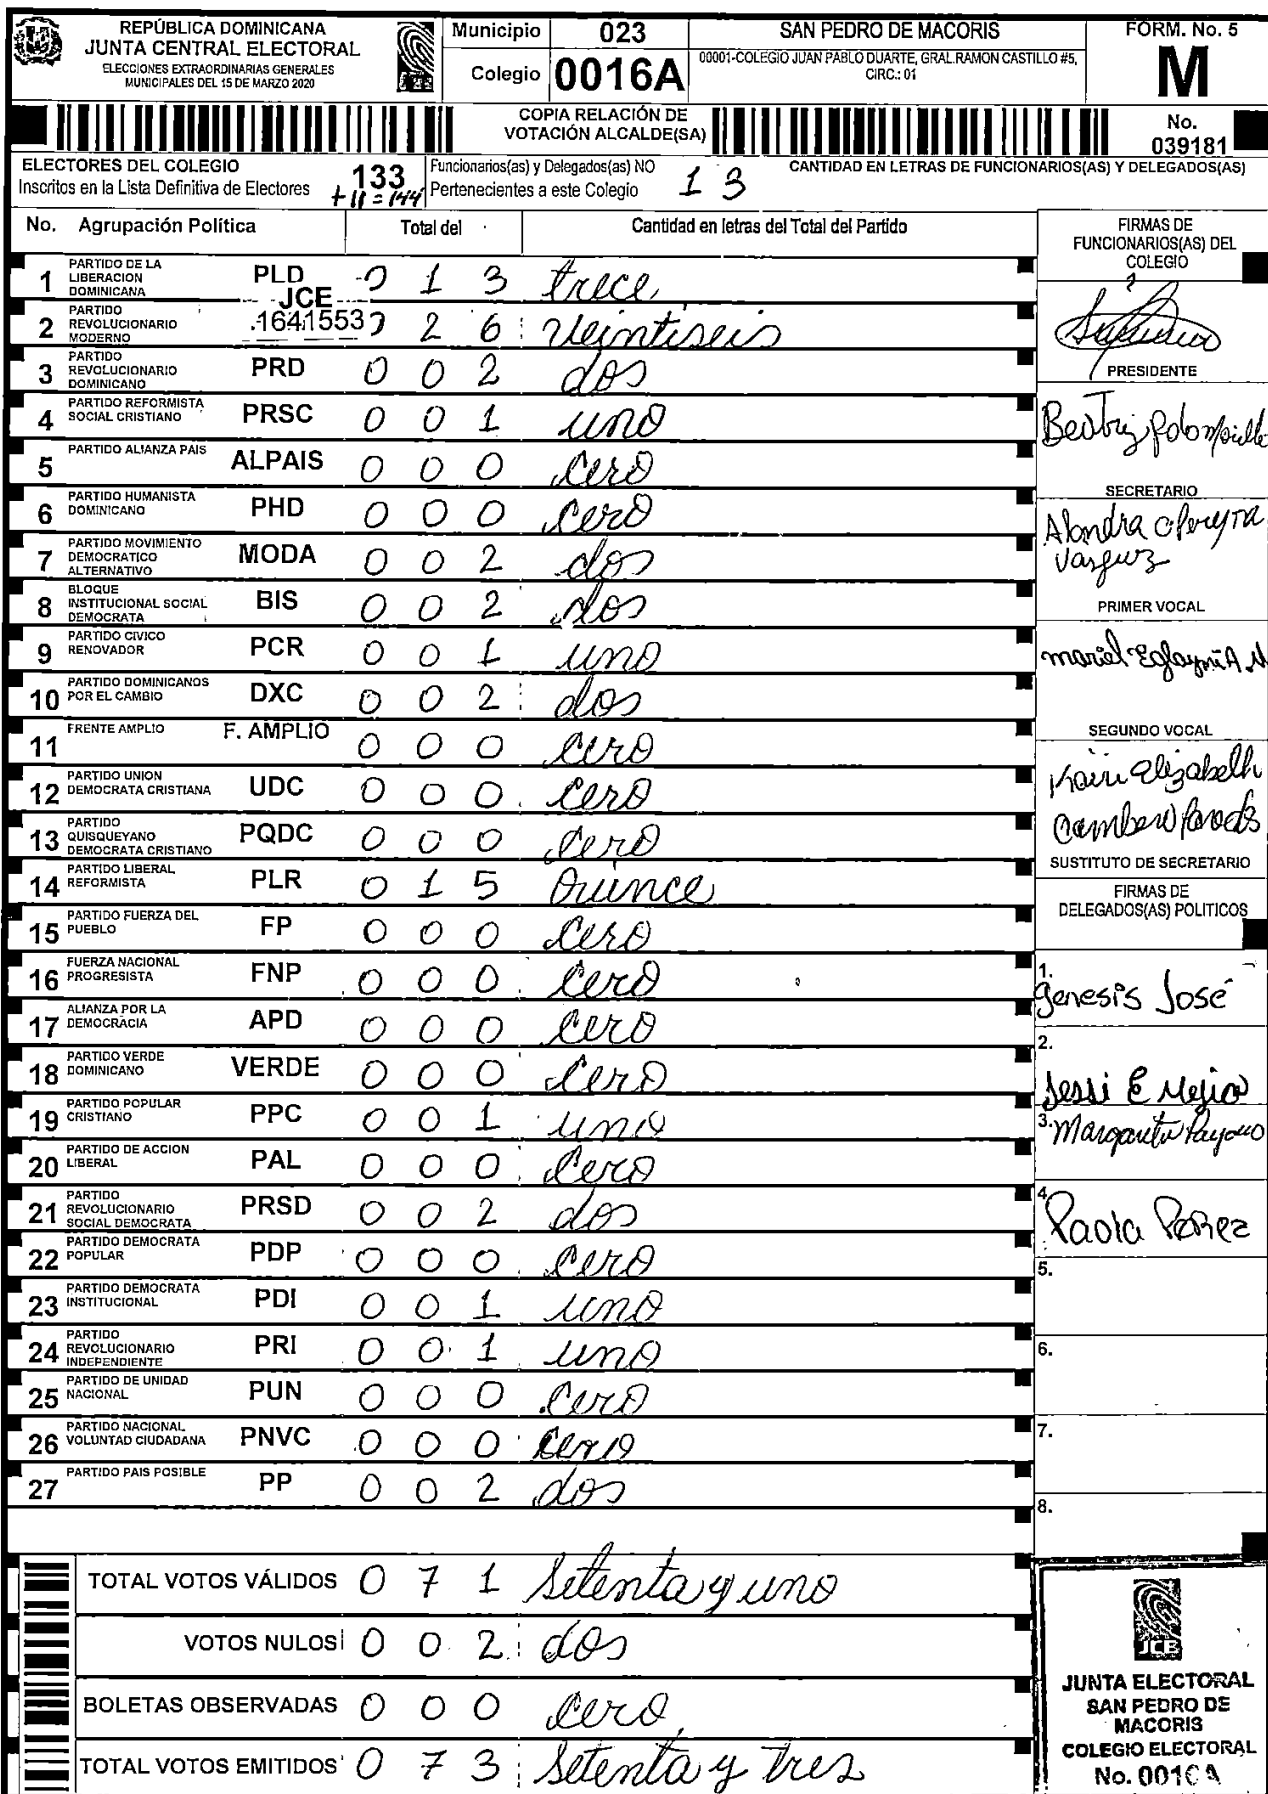 REPÚBLICA DOMINICANA
JUNTA CENTRAL ELECTORAL
ELECCIONES EXTRAORDINARIAS GENERALES
MUNICIPALES DEL 15 DE MARZO 2020
Municipio 023 SAN PEDRO DE MACORIS
Colegio 0016A 00001-COLEGIO JUAN PABLO DUARTE, GRAL.RAMON CASTILLO #5,
CIRC.: 01
FORM. No. 5
M
COPIA RELACIÓN DE
VOTACIÓN ALCALDE(SA)
No.
039181
ELECTORES DEL COLEGIO
Inscritos en la Lista Definitiva de Electores 133
+11=144
Funcionarios(as) y Delegados(as) NO
Pertenecientes a este Colegio 13
CANTIDAD EN LETRAS DE FUNCIONARIOS(AS) Y DELEGADOS(AS)
No. Agrupación Política Total del Cantidad en letras del Total del Partido
1 PARTIDO DE LA LIBERACION DOMINICANA PLD 0 1 3 trece
JCE
1641553
2 PARTIDO REVOLUCIONARIO MODERNO 2 6 Veintiseis
3 PARTIDO REVOLUCIONARIO DOMINICANO PRD 0 0 2 dos
4 PARTIDO REFORMISTA SOCIAL CRISTIANO PRSC 0 0 1 uno
5 PARTIDO ALIANZA PAIS ALPAIS 0 0 0 cero
6 PARTIDO HUMANISTA DOMINICANO PHD 0 0 0 cero
7 PARTIDO MOVIMIENTO DEMOCRATICO ALTERNATIVO MODA 0 0 2 dos
8 BLOQUE INSTITUCIONAL SOCIAL DEMOCRATA BIS 0 0 2 dos
9 PARTIDO CIVICO RENOVADOR PCR 0 0 1 uno
10 PARTIDO DOMINICANOS POR EL CAMBIO DXC 0 0 2 dos
11 FRENTE AMPLIO F. AMPLIO 0 0 0 cero
12 PARTIDO UNION DEMOCRATA CRISTIANA UDC 0 0 0 cero
13 PARTIDO QUISQUEYANO DEMOCRATA CRISTIANO PQDC 0 0 0 cero
14 PARTIDO LIBERAL REFORMISTA PLR 0 1 5 Quince
15 PARTIDO FUERZA DEL PUEBLO FP 0 0 0 cero
16 FUERZA NACIONAL PROGRESISTA FNP 0 0 0 cero
17 ALIANZA POR LA DEMOCRACIA APD 0 0 0 cero
18 PARTIDO VERDE DOMINICANO VERDE 0 0 0 cero
19 PARTIDO POPULAR CRISTIANO PPC 0 0 1 uno
20 PARTIDO DE ACCION LIBERAL PAL 0 0 0 cero
21 PARTIDO REVOLUCIONARIO SOCIAL DEMOCRATA PRSD 0 0 2 dos
22 PARTIDO DEMOCRATA POPULAR PDP 0 0 0 cero
23 PARTIDO DEMOCRATA INSTITUCIONAL PDI 0 0 1 uno
24 PARTIDO REVOLUCIONARIO INDEPENDIENTE PRI 0 0 1 uno
25 PARTIDO DE UNIDAD NACIONAL PUN 0 0 0 cero
26 PARTIDO NACIONAL VOLUNTAD CIUDADANA PNVC 0 0 0 cero
27 PARTIDO PAIS POSIBLE PP 0 0 2 dos
TOTAL VOTOS VÁLIDOS 0 7 1 Setenta y uno
VOTOS NULOS 0 0 2 dos
BOLETAS OBSERVADAS 0 0 0 cero
TOTAL VOTOS EMITIDOS 0 7 3 Setenta y tres
FIRMAS DE
FUNCIONARIOS(AS) DEL
COLEGIO
PRESIDENTE
Beatriz
SECRETARIO
Alondra Pereyra
Vasquez
PRIMER VOCAL
mariel
SEGUNDO VOCAL
Elizabeth
SUSTITUTO DE SECRETARIO
FIRMAS DE
DELEGADOS(AS) POLITICOS
1.
Genesis José
2.
Jessi E Mejia
3. Margarita Payano
4.
Paola Perez
5.
6.
7.
8.
JCE
JUNTA ELECTORAL
SAN PEDRO DE
MACORIS
COLEGIO ELECTORAL
No. 0016A